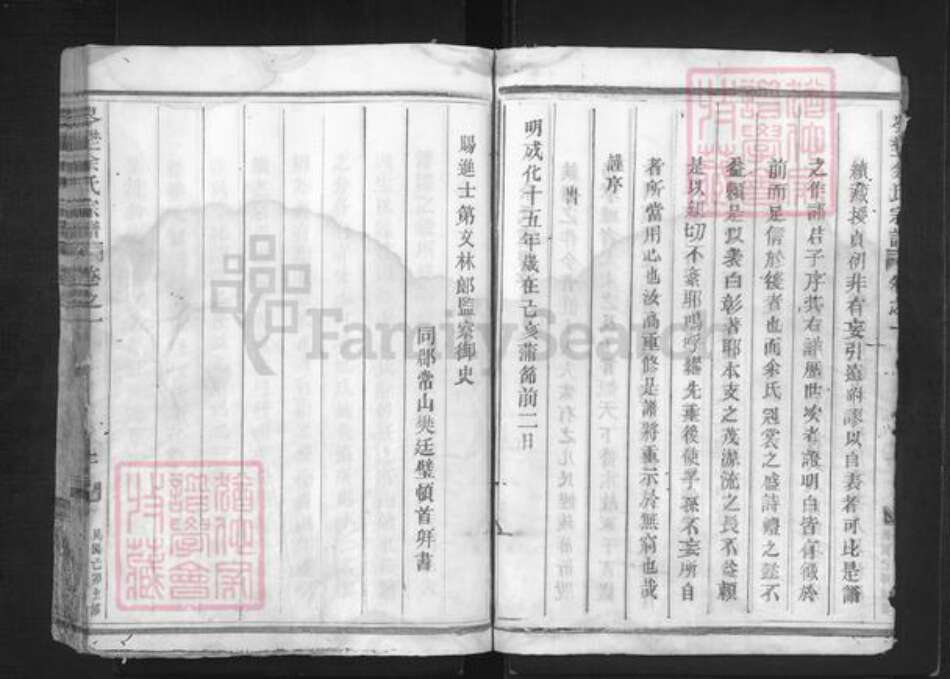 續藏授貞例非有妄引遠附謬以自表者可比是譜
之作諸君子序其右譜歷世埃者證明白皆有徵於
前而足信於後者也而余氏冠裳之盛詩禮之懿不
益賴是以表白彰著耶本支之茂源流之長不益賴
是以親切不紊耶嗚呼繼先垂後使子孫不妄所自
者所當用心也汝高重修是譜將垂示於無窮也哉
謹序
旹
明成化十五年歲在己亥蒲節前二日
賜進士第文林郎監察御史
同郡常山樊廷璧頓首拜書
余氏宗譜 卷之一
民國己卯重修
FamilySearch
譜學會
收藏